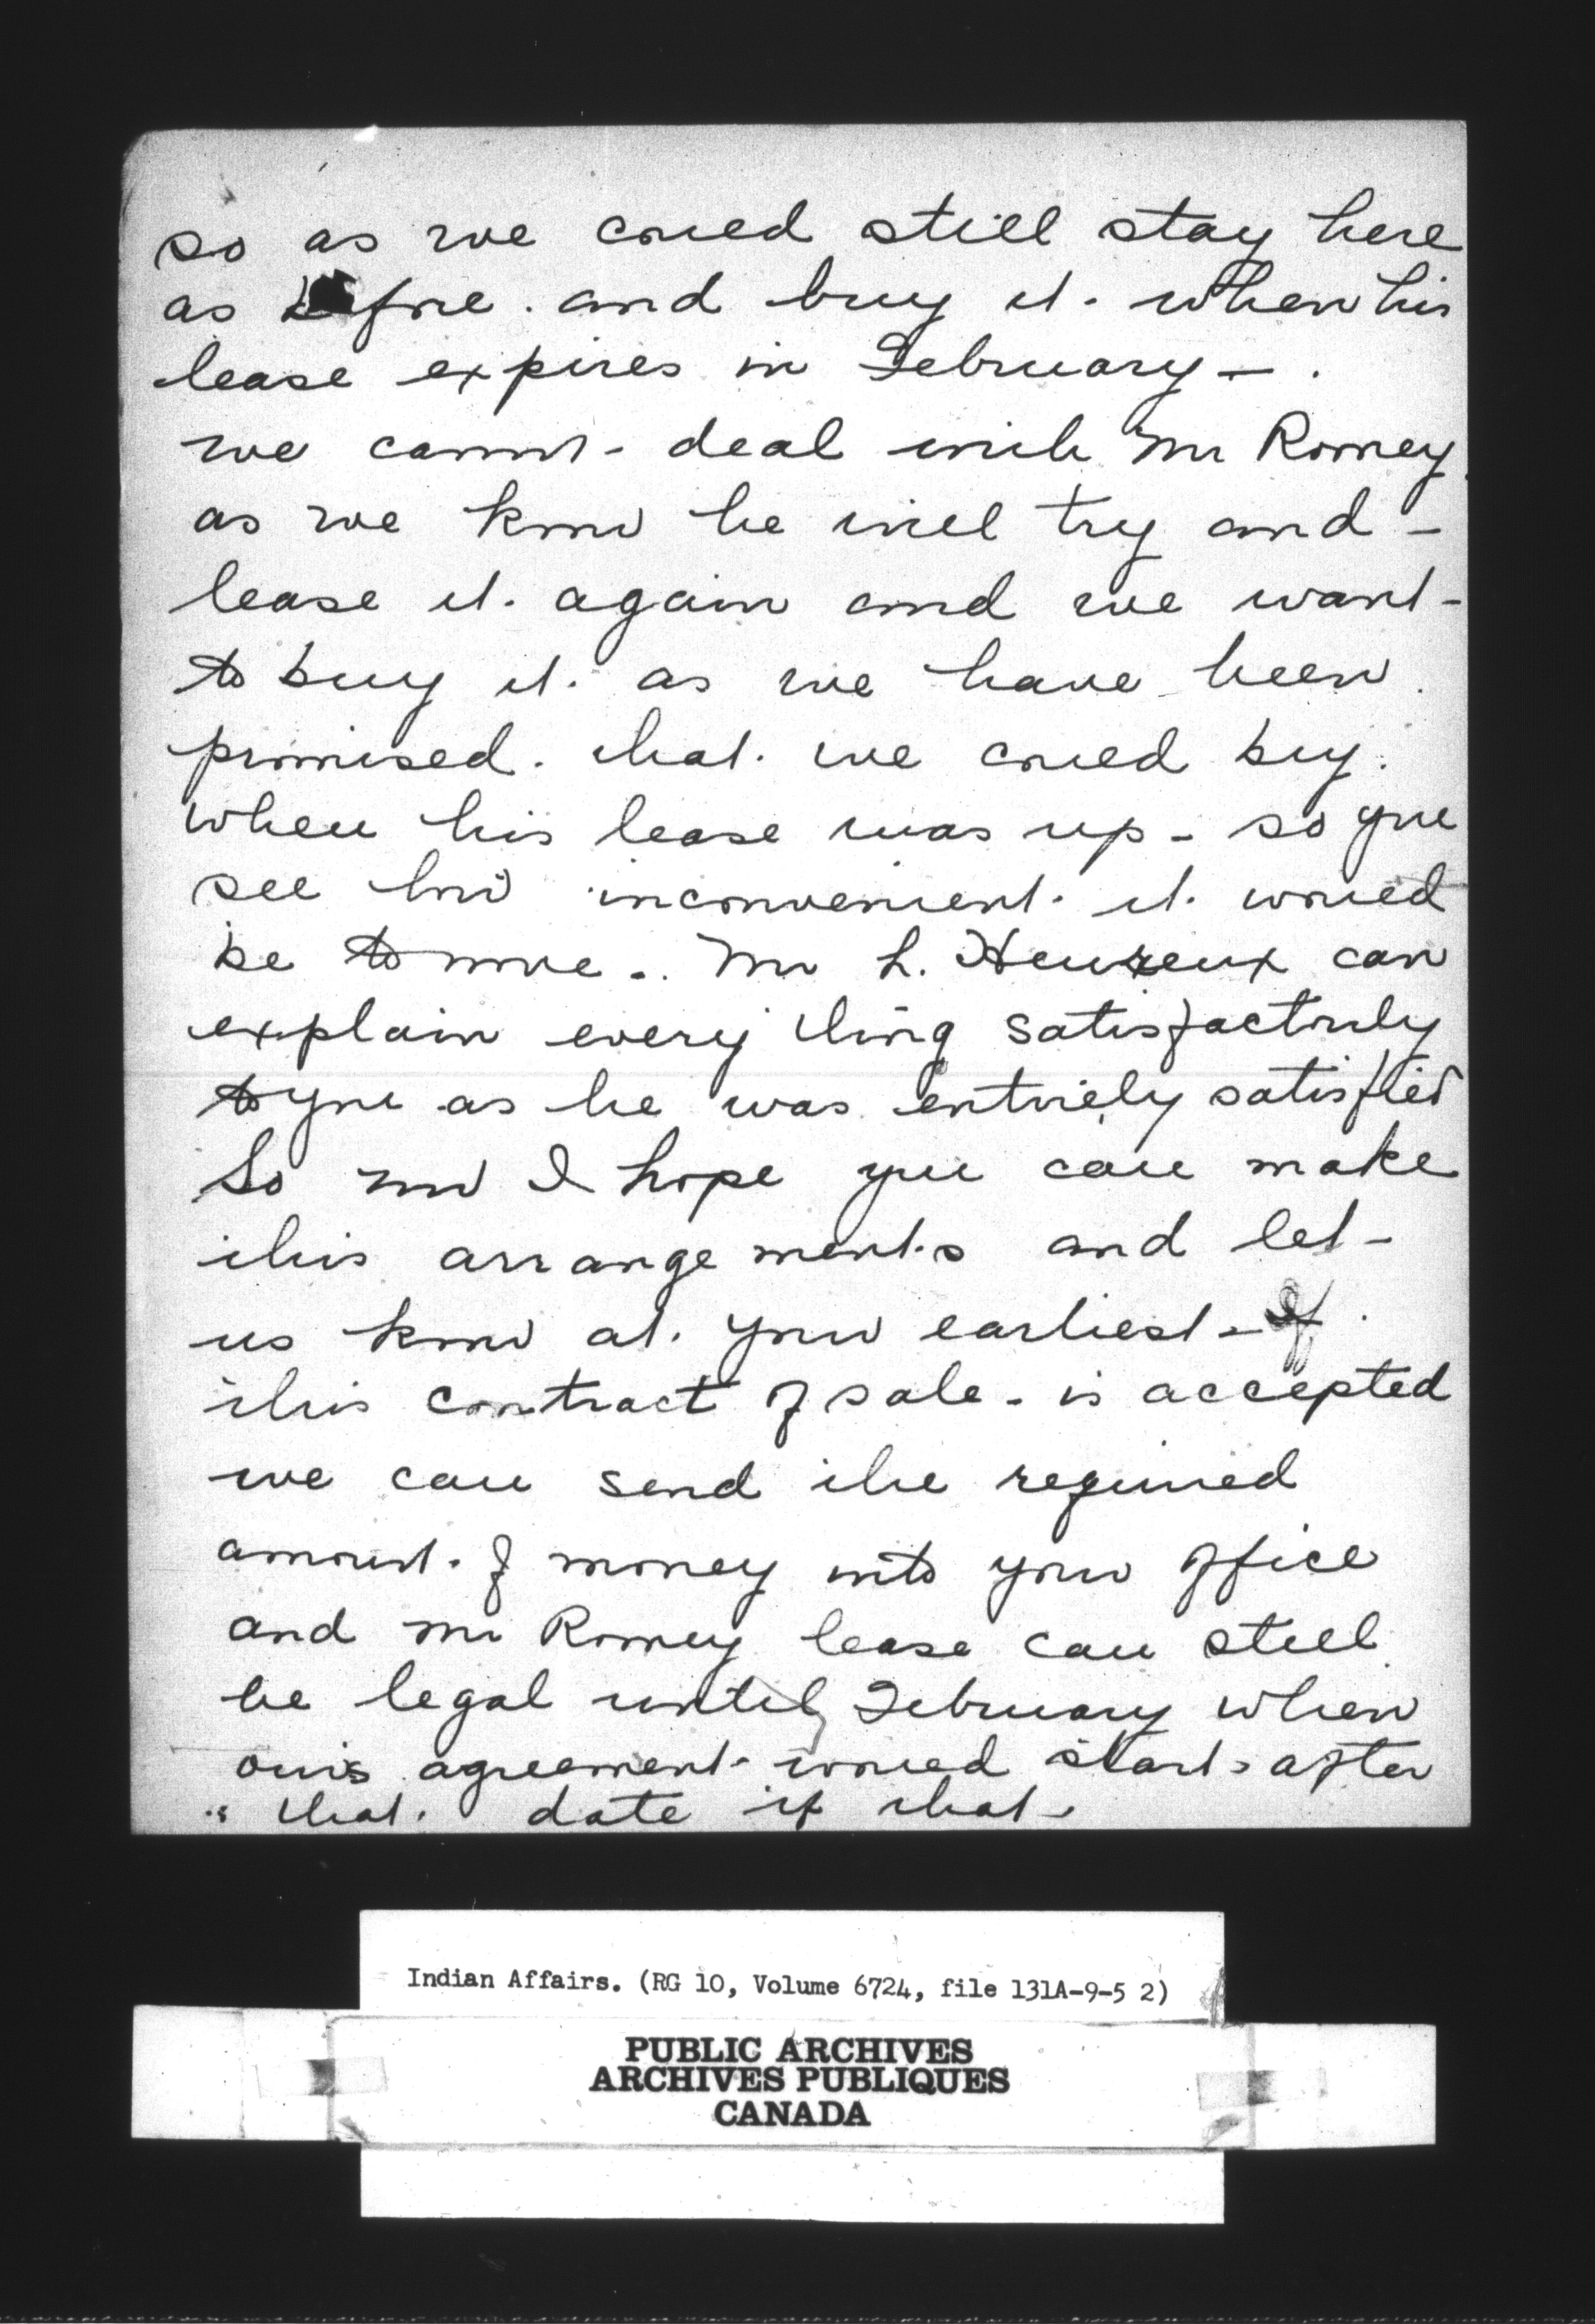 so as we could still stay here
as before. and buy it. when his
lease expires in February - .
we cannot - deal with Mr Romey
as we know he will try and -
lease it. again and we want -
to buy it. as we have been.
promised. that. we could buy.
when his lease was up - so you
see how inconvenient. it. would
be to move. . Mr L. Heureux can
explain every thing satisfactorily
to you as he was entirely satisfied
So now I hope you can make
this arrangements and let -
us know at. your earliest - If.
this contract of sale - is accepted
we can send the required
amount. of money into your office
and Mr Romey lease can still
be legal until February when
ours agreement - would start - after
that. date if that -
Indian Affairs. (RG 10, Volume 6724, file 131A-9-5 2)
PUBLIC ARCHIVES
ARCHIVES PUBLIQUES
CANADA